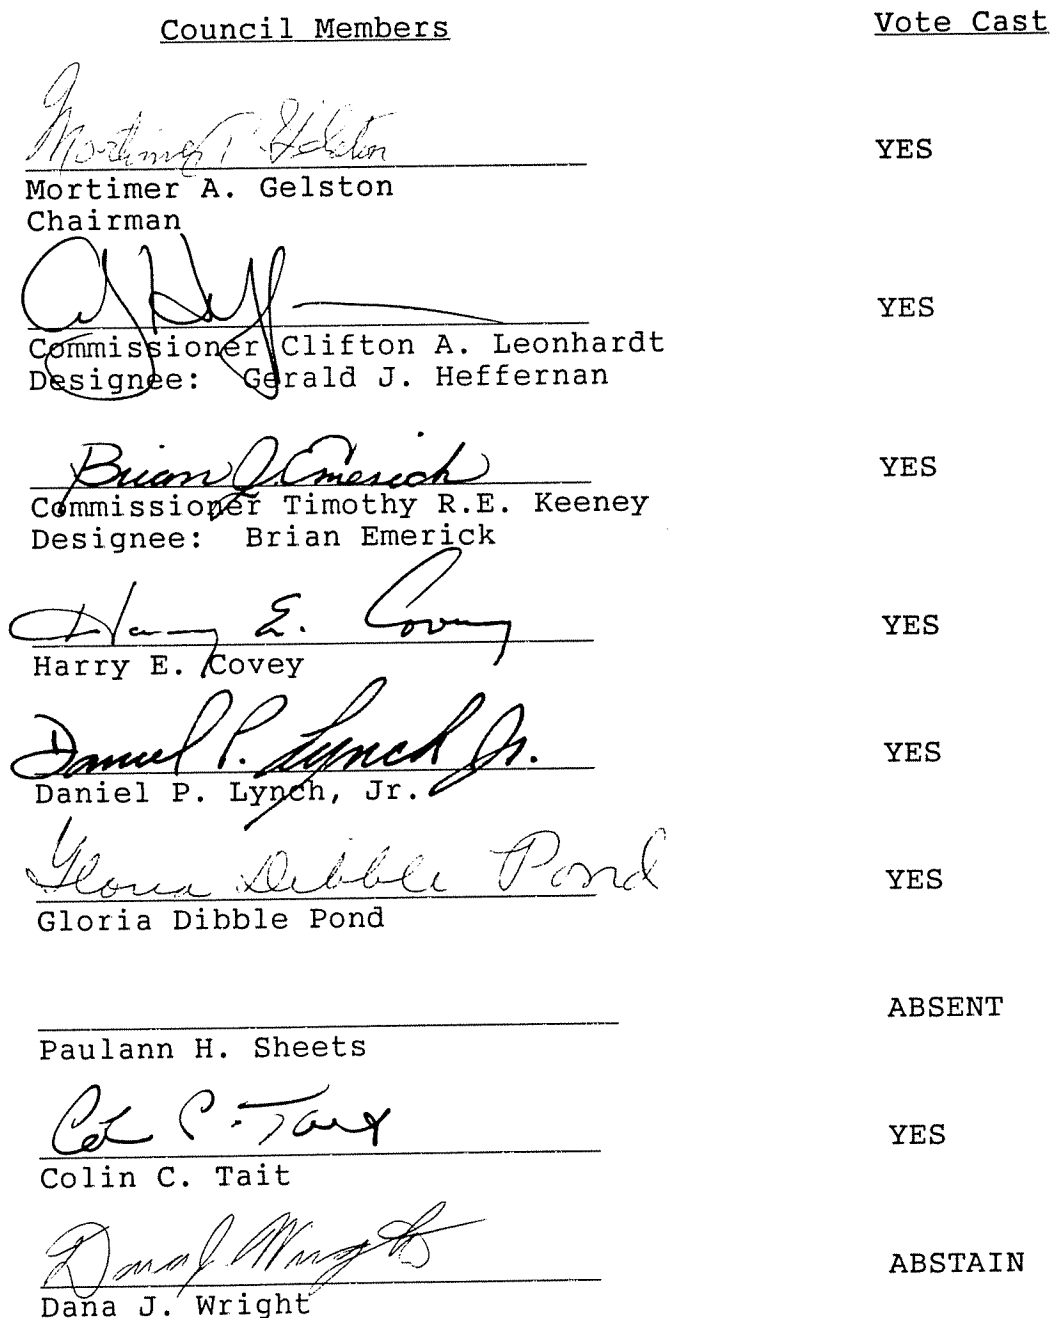 Council Members Vote Cast
Mortimer A. Gelston YES
Mortimer A. Gelston
Chairman
YES
Commissioner Clifton A. Leonhardt
Designee: Gerald J. Heffernan
Brian J. Emerick YES
Commissioner Timothy R.E. Keeney
Designee: Brian Emerick
Harry E. Covey YES
Harry E. Covey
Daniel P. Lynch Jr. YES
Daniel P. Lynch, Jr.
Gloria Dibble Pond YES
Gloria Dibble Pond
ABSENT
Paulann H. Sheets
Colin C. Tait YES
Colin C. Tait
Dana J. Wright ABSTAIN
Dana J. Wright